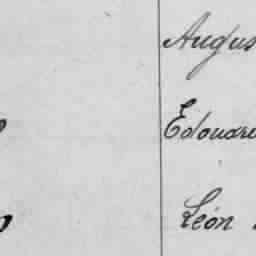 Augus
Edouard
Léon